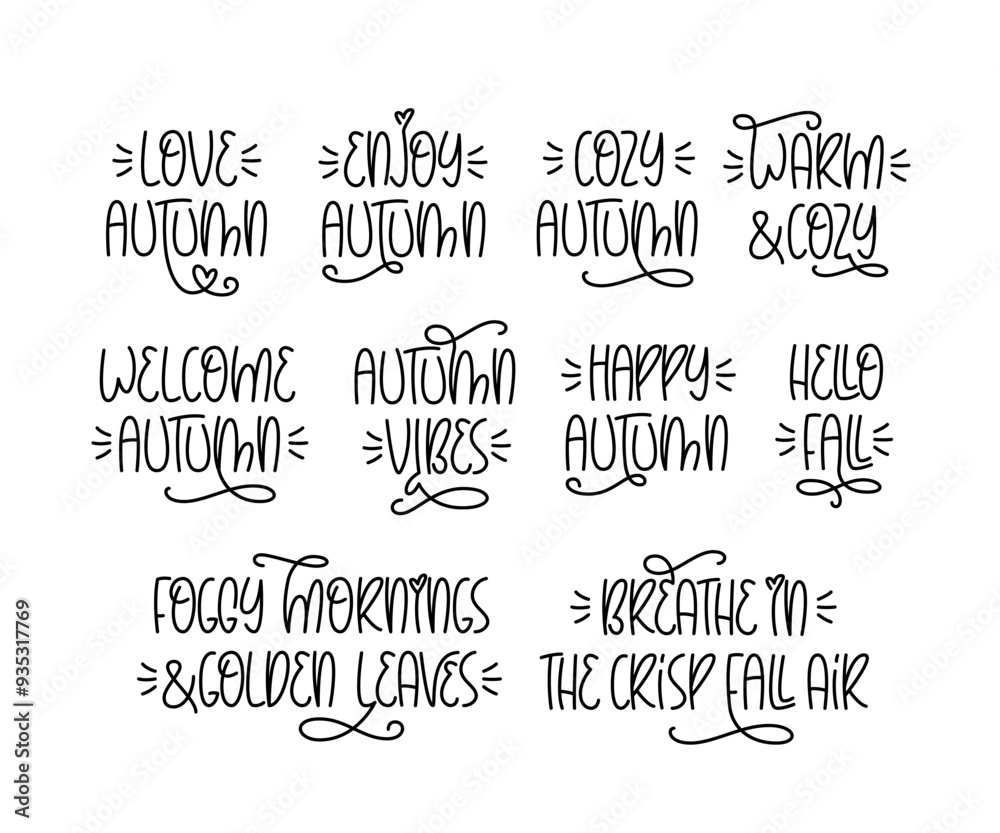 LOVE
AUTUMN
ENJOY
AUTUMN
COZY
AUTUMN
WARM
&COZY
WELCOME
AUTUMN
AUTUMN
VIBES
HAPPY
AUTUMN
HELLO
FALL
FOGGY MORNINGS
&GOLDEN LEAVES
BREATHE IN
THE CRISP FALL AIR
Adobe Stock | #935317769